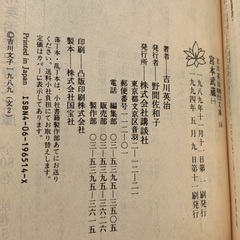 宮本武蔵
一九八九年十一月十一日第一刷発行
一九九四年五月九日第十二刷発行
著者―吉川英治
発行者―野間佐和子
発行所―株式会社講談社
東京都文京区音羽二-一二-二一
郵便番号一一二-〇一
電話 編集部 〇三-五三九五-三五〇五
販売部 〇三-五三九五-三六二六
製作部 〇三-五三九五-三六一五
印刷―凸版印刷株式会社
製本―株式会社国宝社
落丁本・乱丁本は、小社書籍製作部あてにお送り
ください。送料小社負担にてお取り替えします。
定価はカバーに表示してあります。
ISBN4-06-196514-X
©吉川文子 一九八九